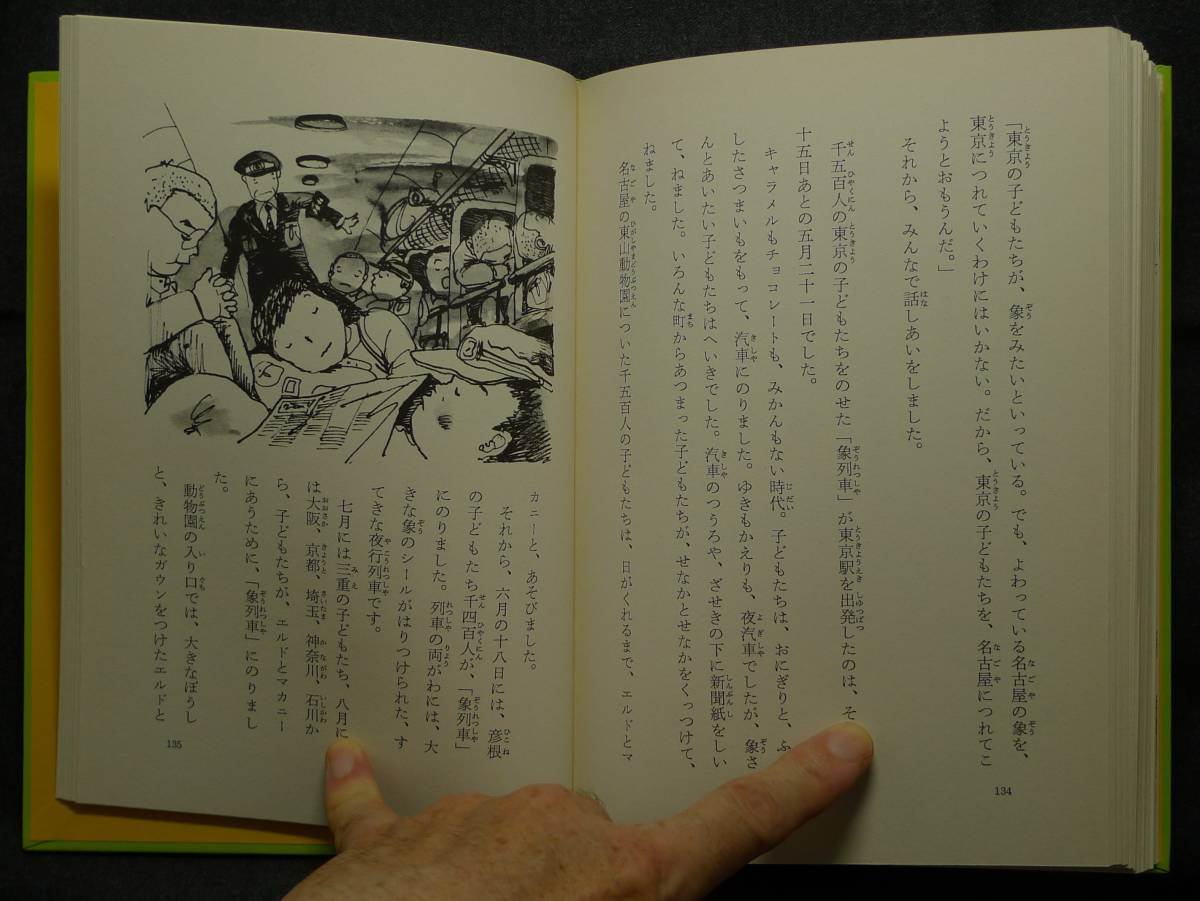 「東京の子どもたちが、象をみたいといっている。でも、よわっている名古屋の象を、
東京につれていくわけにはいかない。だから、東京の子どもたちを、名古屋につれてこ
ようとおもうんだ。」
それから、みんなで話しあいをしました。
千五百人の東京の子どもたちをのせた「象列車」が東京駅を出発したのは、そ
十五日あとの五月二十一日でした。
キャラメルもチョコレートも、みかんもない時代。子どもたちは、おにぎりと、ふ
したさつまいもをもって、汽車にのりました。ゆきもかえりも、夜汽車でしたが、象さ
んとあいたい子どもたちはへいきでした。汽車のつうろや、ざせきの下に新聞紙をしい
て、ねました。いろんな町からあつまった子どもたちが、せなかとせなかをくっつけて、
ねました。
名古屋の東山動物園についた千五百人の子どもたちは、日がくれるまで、エルドとマ
134
カニーと、あそびました。
それから、六月の十八日には、彦根
の子どもたち千四百人が、「象列車」
にのりました。列車の両がわには、大
きな象のシールがはりつけられた、す
てきな夜行列車です。
七月には三重の子どもたち、八月に
は大阪、京都、埼玉、神奈川、石川か
ら、子どもたちが、エルドとマカニー
にあうために、「象列車」にのりまし
た。
動物園の入り口では、大きなぼうし
と、きれいなガウンをつけたエルドと
135